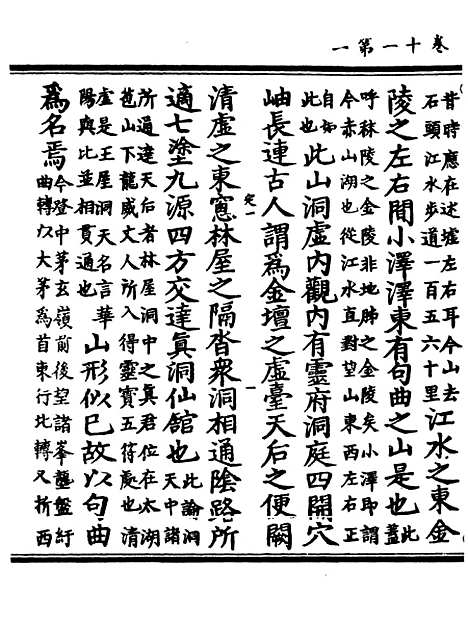 卷十一第一
昔時應在述墟左右耳今山去
石頭江水步道一百五六十里江水之東金
陵之左右間小澤澤東有句曲之山是也蓋此
呼秣陵之金陵非地肺之金陵矣小澤即謂
今赤山湖也從江水直對望山東西左右正
自如此也此山洞虛內觀內有靈府洞庭四開穴
岫長連古人謂為金壇之虛臺天后之便闕
清虛之東窻林屋之隔沓衆洞相通陰路所
適七塗九源四方交達真洞仙舘也此論洞天中諸
所通達天后者林屋洞中之真君位在太湖
苞山下龍威丈人所入得靈寶五符處也清
虛是王屋洞天名言華
陽與比並相貫通也山形似已故以句曲
為名焉今登中茅玄嶺前後望諸峯壟盤紆
曲轉以大茅為首東行北轉又折西